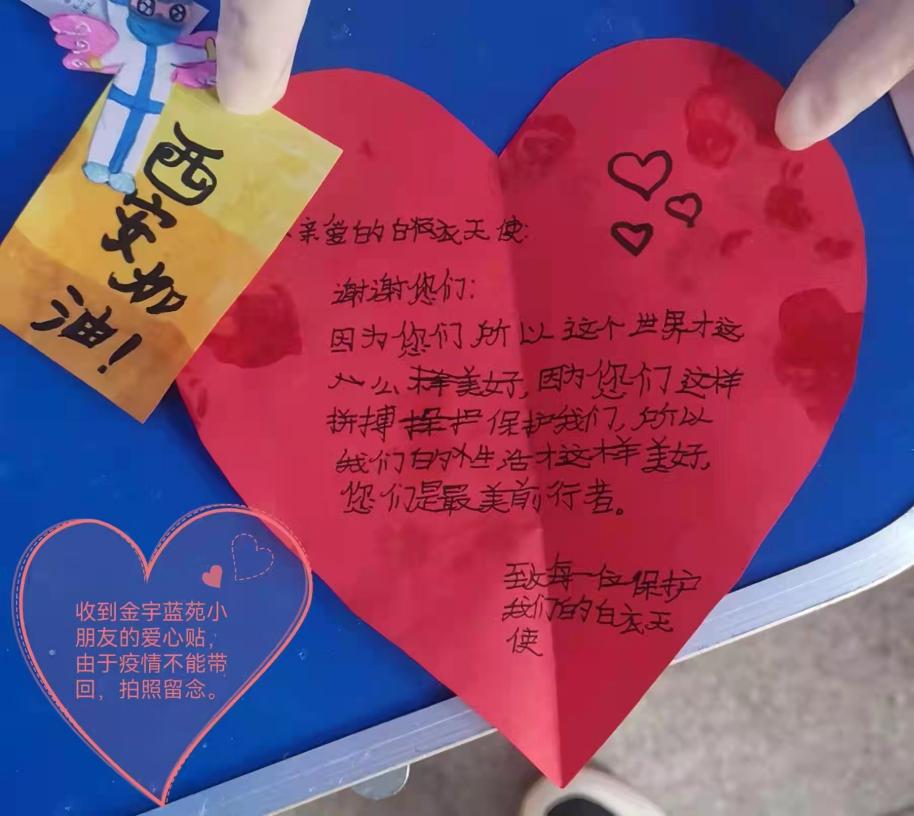 西安加
油!
亲爱的白衣天使:
谢谢您们:
因为您们所以这个世界才这
么美好,因为您们这样
拼搏保护我们,所以
我们的生活才这样美好,
您们是最美前行者。
致每一位保护
我们的白衣天
使
收到金宇蓝苑小
朋友的爱心贴,
由于疫情不能带
回,拍照留念。